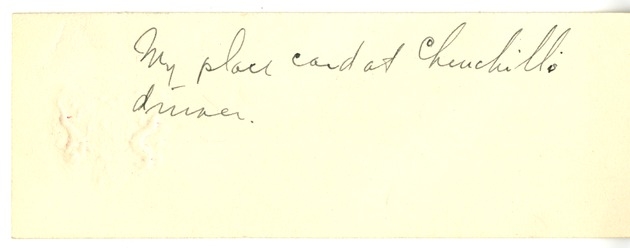 My place card at Churchill's
dinner.